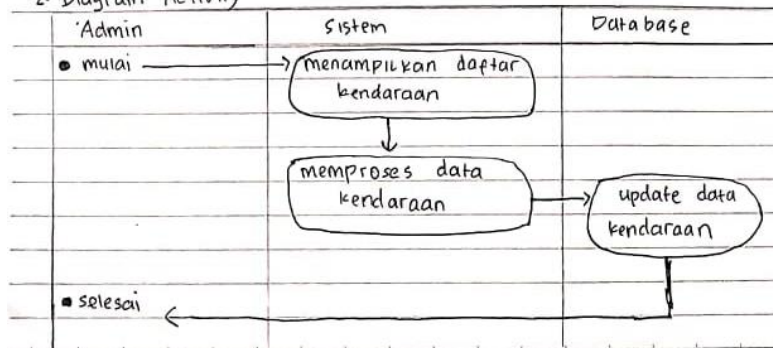 2. Diagram Activity
Admin
Sistem
Database
mulai
menampilkan daftar
kendaraan
memproses data
kendaraan
update data
kendaraan
selesai